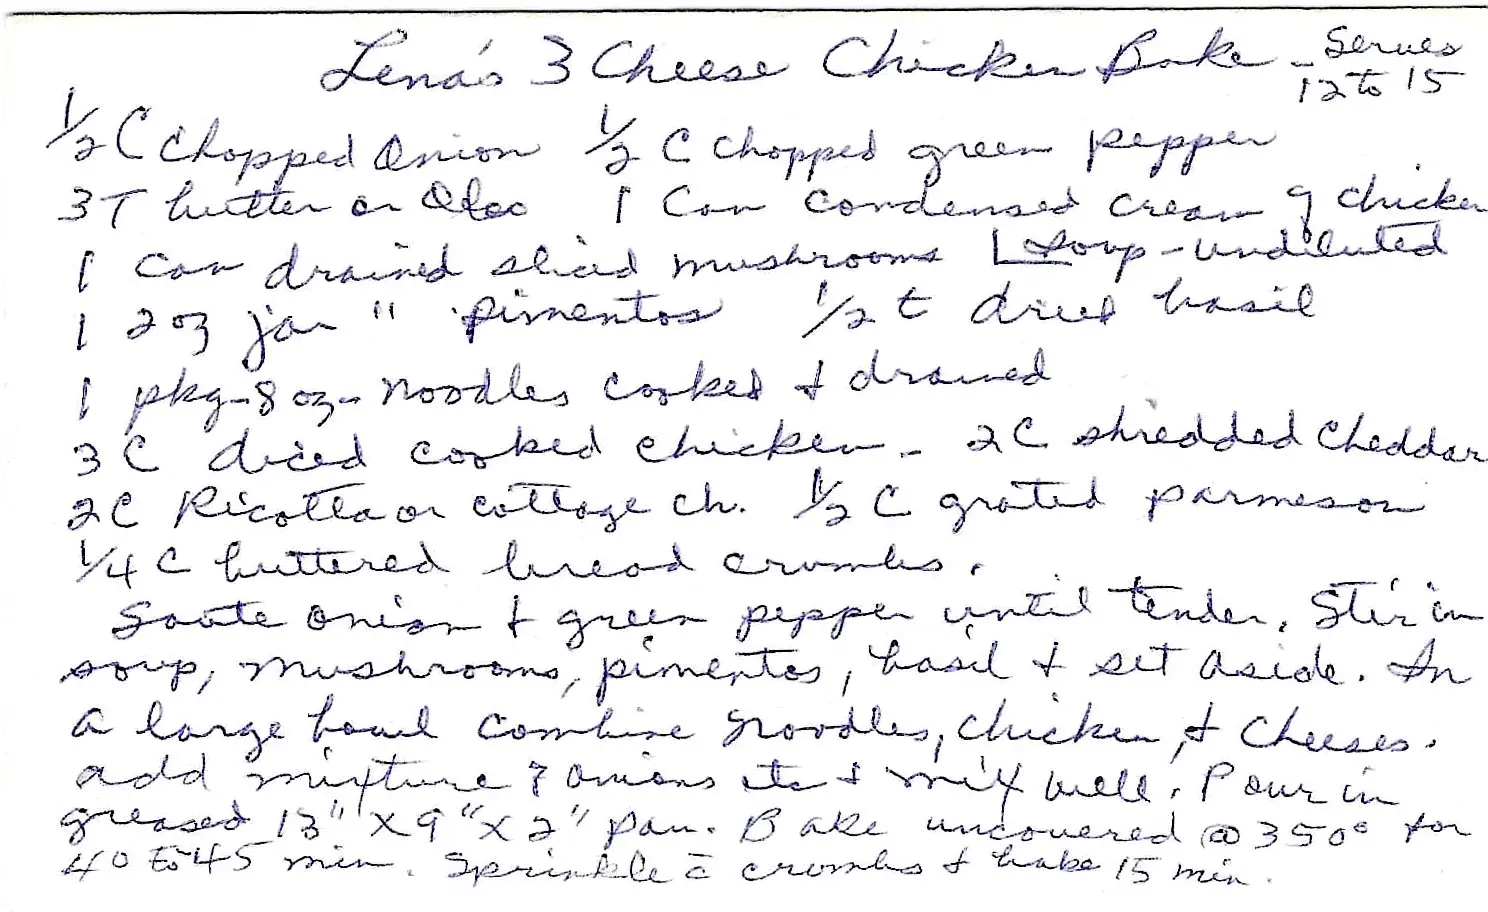 Lena's 3 Cheese Chicken Bake - Serves
12 to 15
1/2 C Chopped Onion 1/2 C chopped green pepper
3 T butter or Oleo 1 can condensed cream of chicken
1 can drained sliced mushrooms soup - undiluted
1 2 oz jar " pimentos 1/2 t dried basil
1 pkg - 8 oz - noodles cooked & drained
3 C diced cooked chicken - 2 C shredded cheddar
2 C Ricotta or cottage ch. 1/2 C grated parmeson
1/4 C buttered bread crumbs.
Saute onion & green pepper until tender. Stir in
soup, mushrooms, pimentos, basil & set aside. In
a large bowl combine noodles, chicken, & cheeses.
add mixture of onions etc & mix well. Pour in
greased 13" X 9" X 2" pan. Bake uncovered @ 350° for
40 to 45 min. Sprinkle c̄ crumbs & bake 15 min.